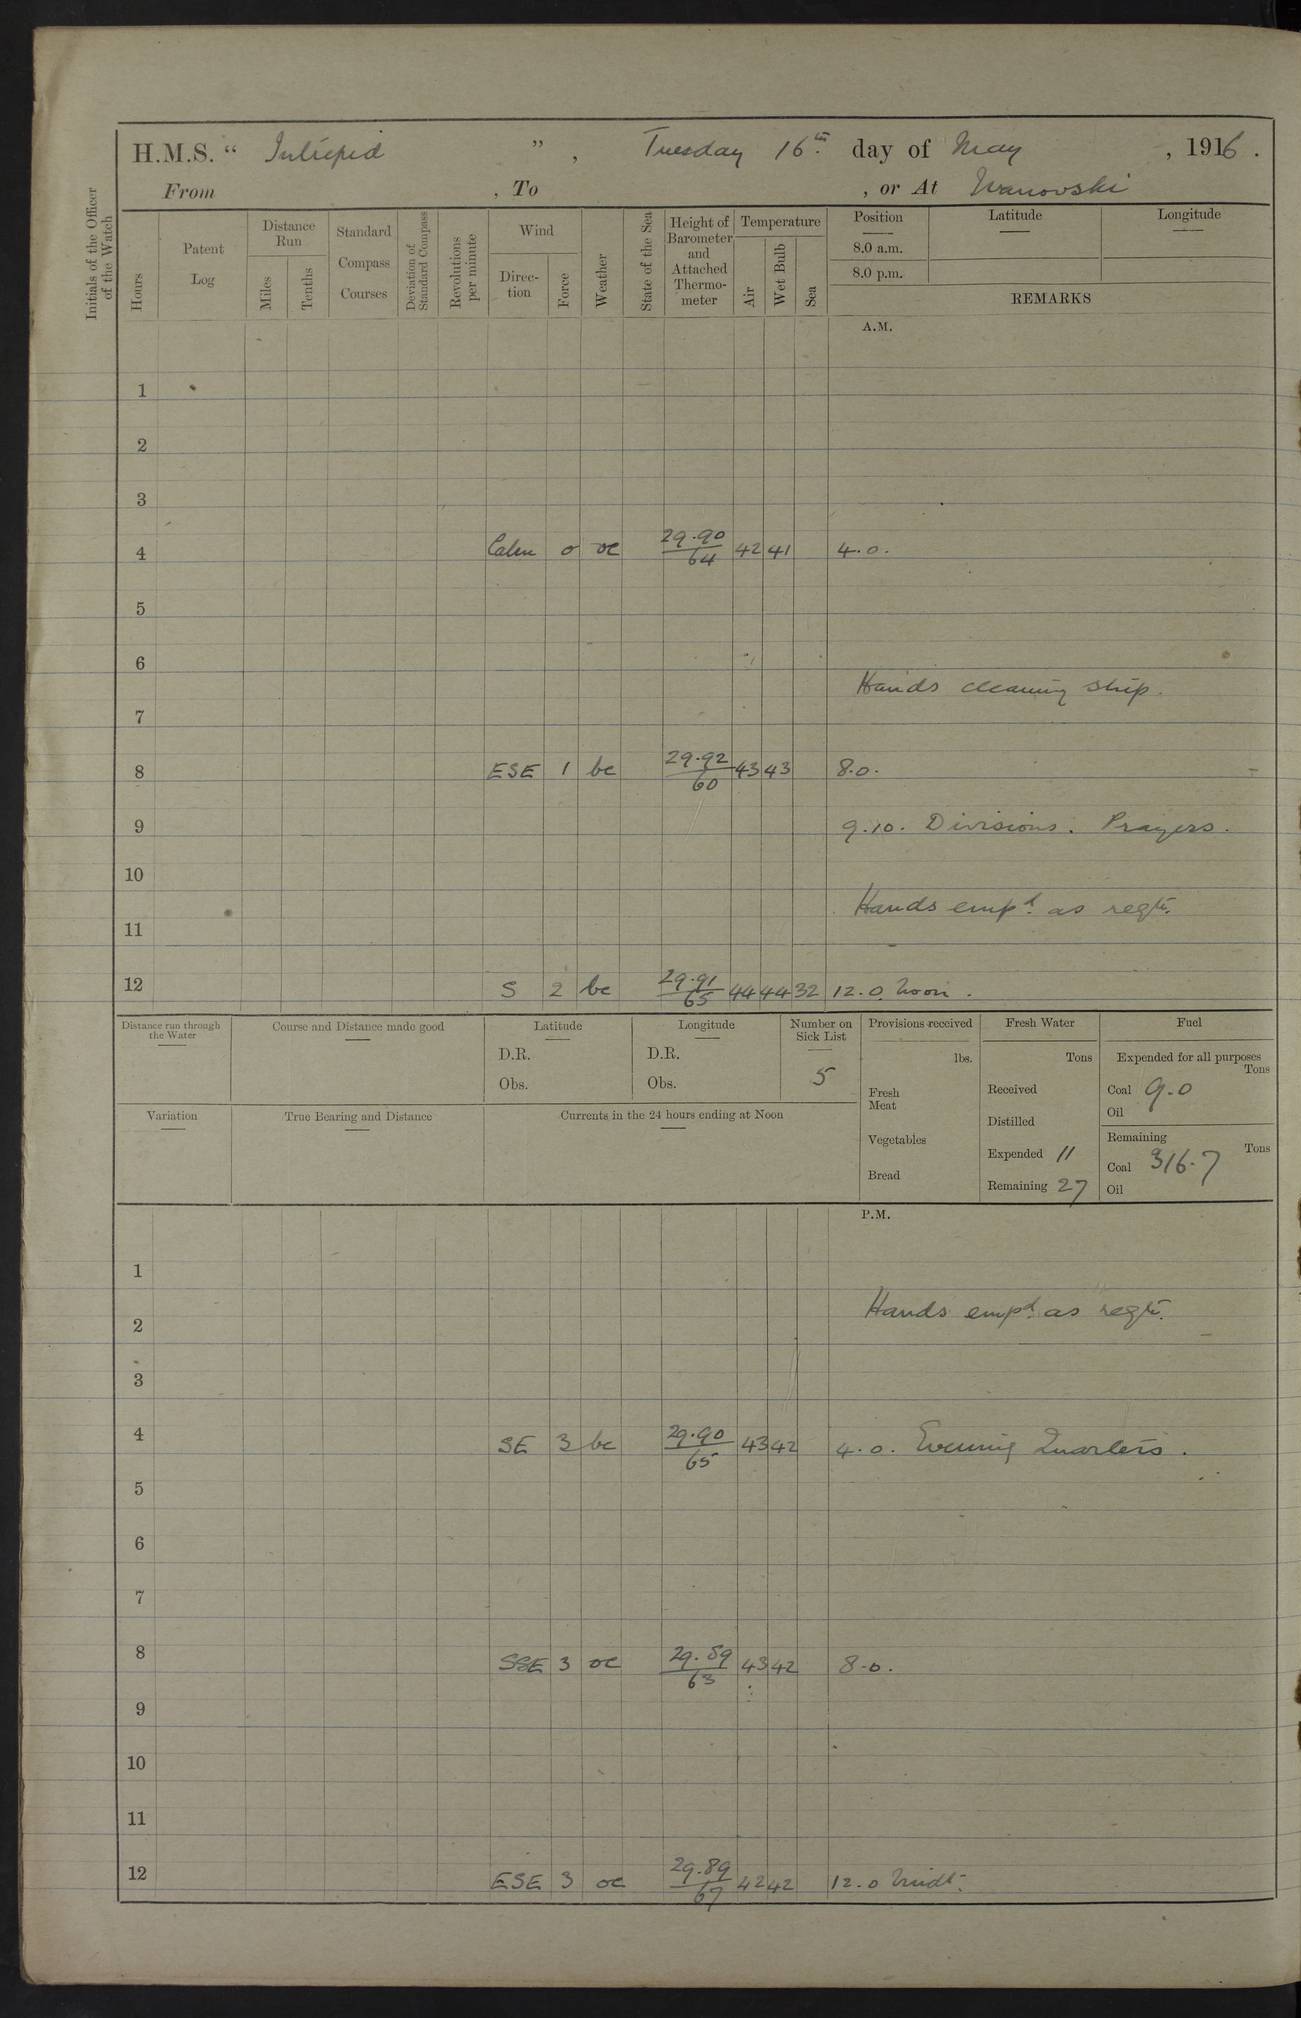 H.M.S. “ Intrepid ” , Tuesday 16th day of May , 1916 .
From , To , or At Ivanovski
Initials of the Officer of the Watch
Hours
Patent Log
Distance Run
Miles
Tenths
Standard Compass Courses
Deviation of Standard Compass
Revolutions per minute
Wind
Direc-tion
Force
Weather
State of the Sea
Height of Barometer and Attached Thermo-meter
Temperature
Air
Wet Bulb
Sea
Position Latitude Longitude
8.0 a.m.
8.0 p.m.
REMARKS
A.M.
1
2
3
4 Calm 0 oc 29.90/64 42 41 4.0.
5
6
Hands cleaning ship.
7
8 ESE 1 bc 29.92/60 43 43 8.0.
9 9.10. Divisions. Prayers.
10
Hands empd. as reqte.
11
12 S 2 bc 29.91/65 44 44 32 12.0 Noon.
Distance run through the Water
Course and Distance made good
Latitude
D.R.
Obs.
Longitude
D.R.
Obs.
Number on Sick List
5
Provisions received
lbs.
Fresh Meat
Vegetables
Bread
Fresh Water
Tons
Received
Distilled
Expended 11
Remaining 27
Fuel
Expended for all purposes
Tons
Coal 9.0
Oil
Remaining
Tons
Coal 316.7
Oil
Variation
True Bearing and Distance
Currents in the 24 hours ending at Noon
P.M.
1
Hands empd. as reqte.
2
3
4 SE 3 bc 29.90/65 43 42 4.0. Evening Quarters.
5
6
7
8 SSE 3 oc 29.89/63 43 42 8.0.
9
10
11
12 ESE 3 oc 29.89/67 42 42 12.0 Midt.